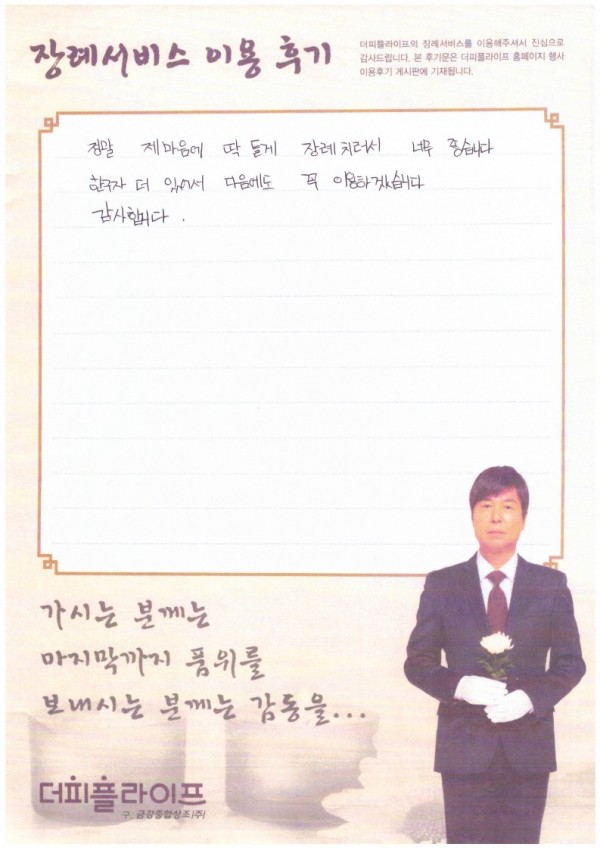 장례서비스 이용 후기
더피플라이프의 장례서비스를 이용해주셔서 진심으로
감사드립니다. 본 후기문은 더피플라이프 홈페이지 행사
이용후기 게시판에 기재됩니다.
정말 제마음에 딱 들게 장례 치러서 너무 좋습니다
한구좌 더 있어서 다음에도 꼭 이용하겠습니다
감사합니다.
가시는 분께는
마지막까지 품위를
보내시는 분께는 감동을...
더피플라이프
구. 금강종합상조(주)